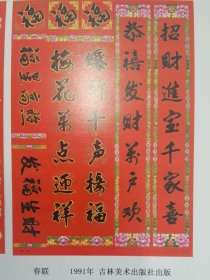 福福福
招財進宝千家喜
恭禧发财萬户欢
爆竹千声接福
梅花萬点迎祥
福星高照
发福生财
春联 1991年 吉林美术出版社出版